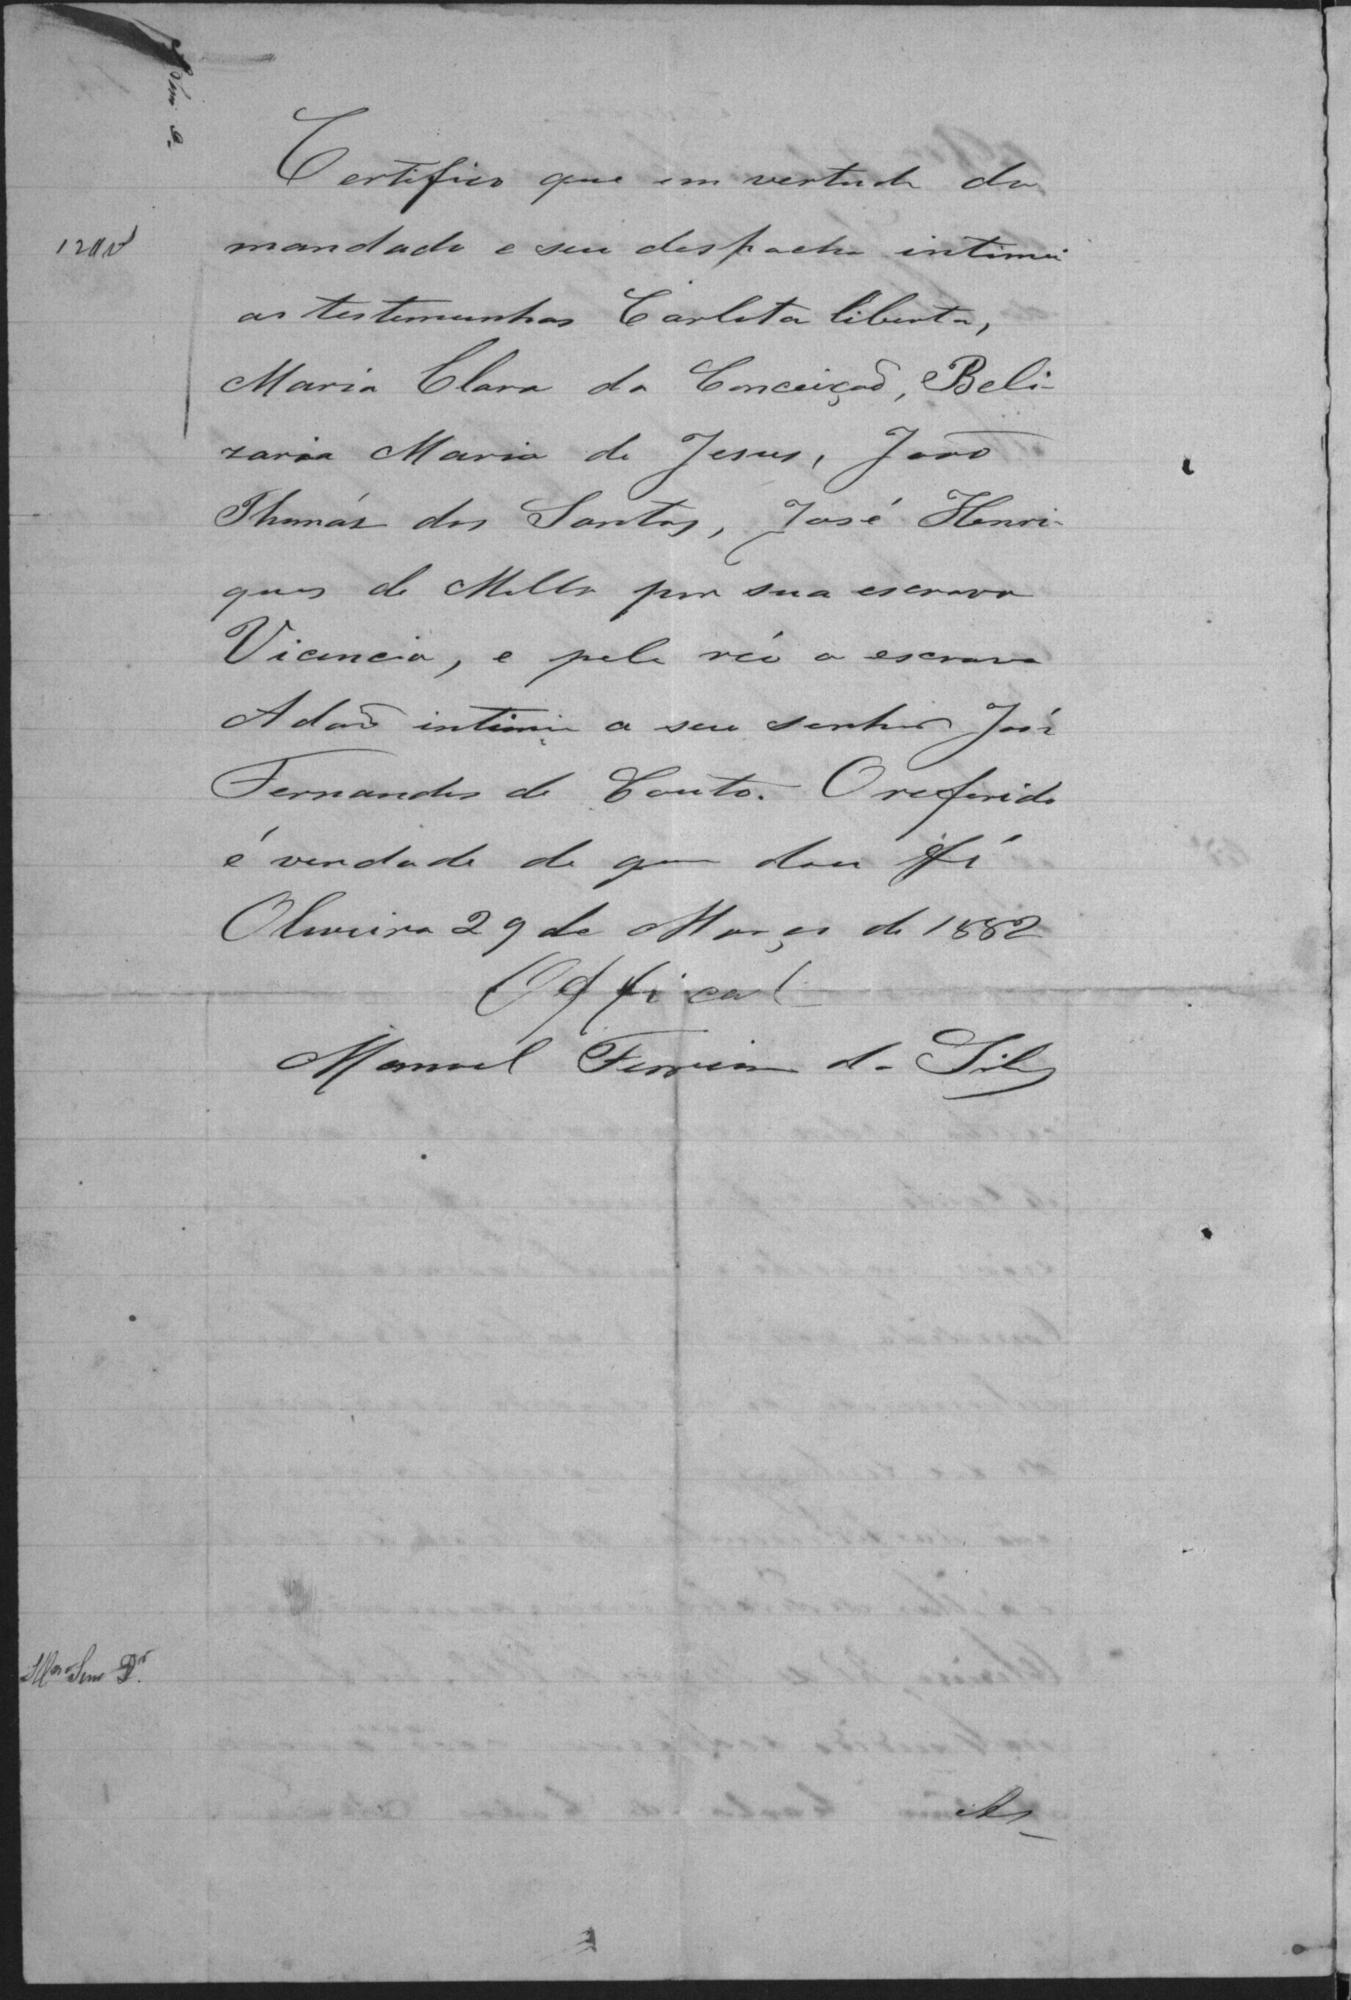 Certifico que em vertude do
mandado e seu despacho intimei
as testemunhas Carlota liberta,
Maria Clara da Conceição, Beli-
zaria Maria de Jesus, João
Thomás dos Santos, José Henri-
ques de Mello por sua escrava
Vicencia, e pelo réo o escravo
Adão intimei a seu senhor José
Fernandes do Couto. O referido
é verdade de que dou fé
Oliveira 29 de Março de 1882
Official
Manoel Ferreira da Silva